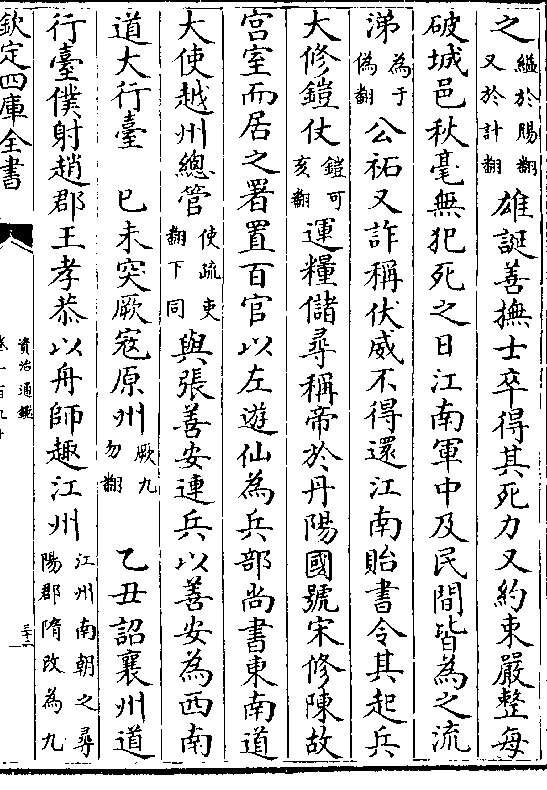 之縊於賜翻又於計翻雄誕善撫士卒得其死力又約束嚴整每
破城邑秋毫無犯死之日江南軍中及民間皆為之流
涕為于偽翻公祏又詐稱伏威不得還江南貽書令其起兵
大修鎧仗鎧可亥翻運糧儲尋稱帝於丹陽國號宋修陳故
宫室而居之署置百官以左遊仙為兵部尚書東南道
大使越州總管使疏吏翻下同與張善安連兵以善安為西南
道大行臺 己未突厥寇原州厥九勿翻 乙丑詔襄州道
行臺僕射趙郡王孝恭以舟師趣江州江州南朝之尋陽郡隋改為九
欽定四庫全書
資治通鑑
卷一百九十